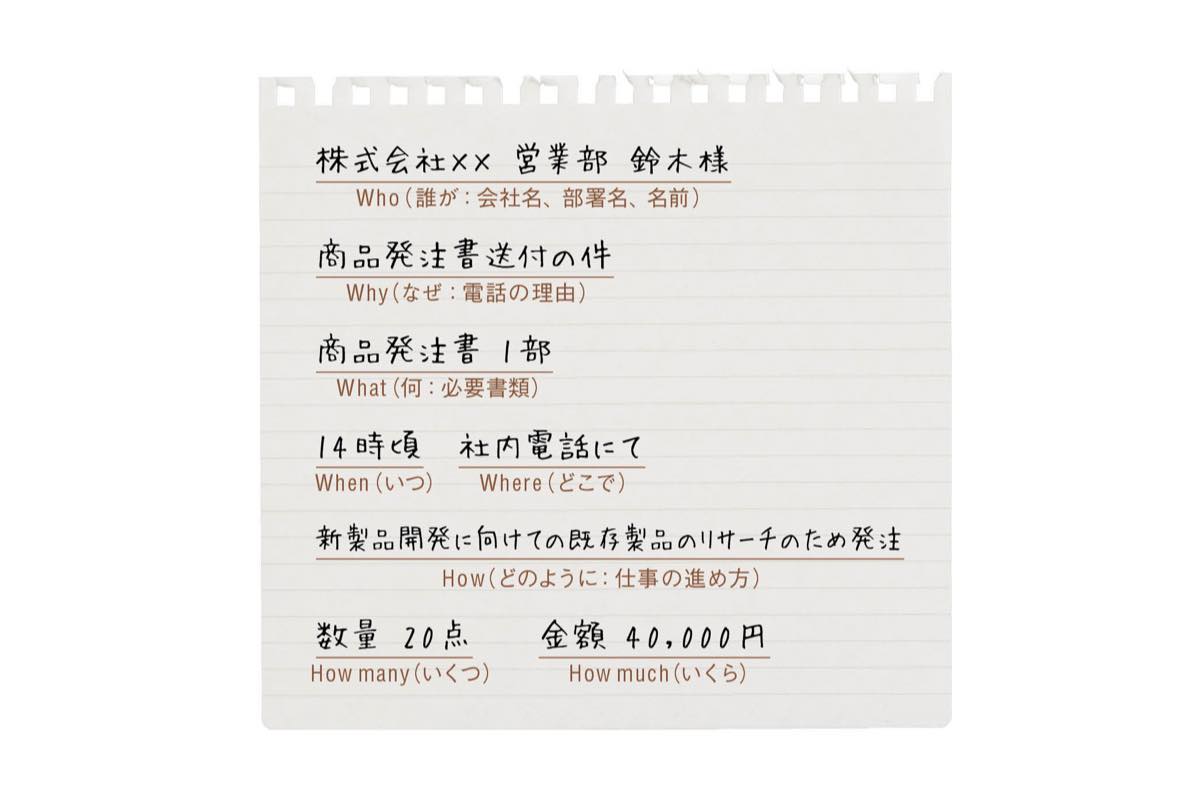 株式会社×× 営業部 鈴木様
Who（誰が：会社名、部署名、名前）
商品発注書送付の件
Why（なぜ：電話の理由）
商品発注書 1部
What（何：必要書類）
14時頃 社内電話にて
When（いつ） Where（どこで）
新製品開発に向けての既存製品のリサーチのため発注
How（どのように：仕事の進め方）
数量 20点 金額 40,000円
How many（いくつ） How much（いくら）